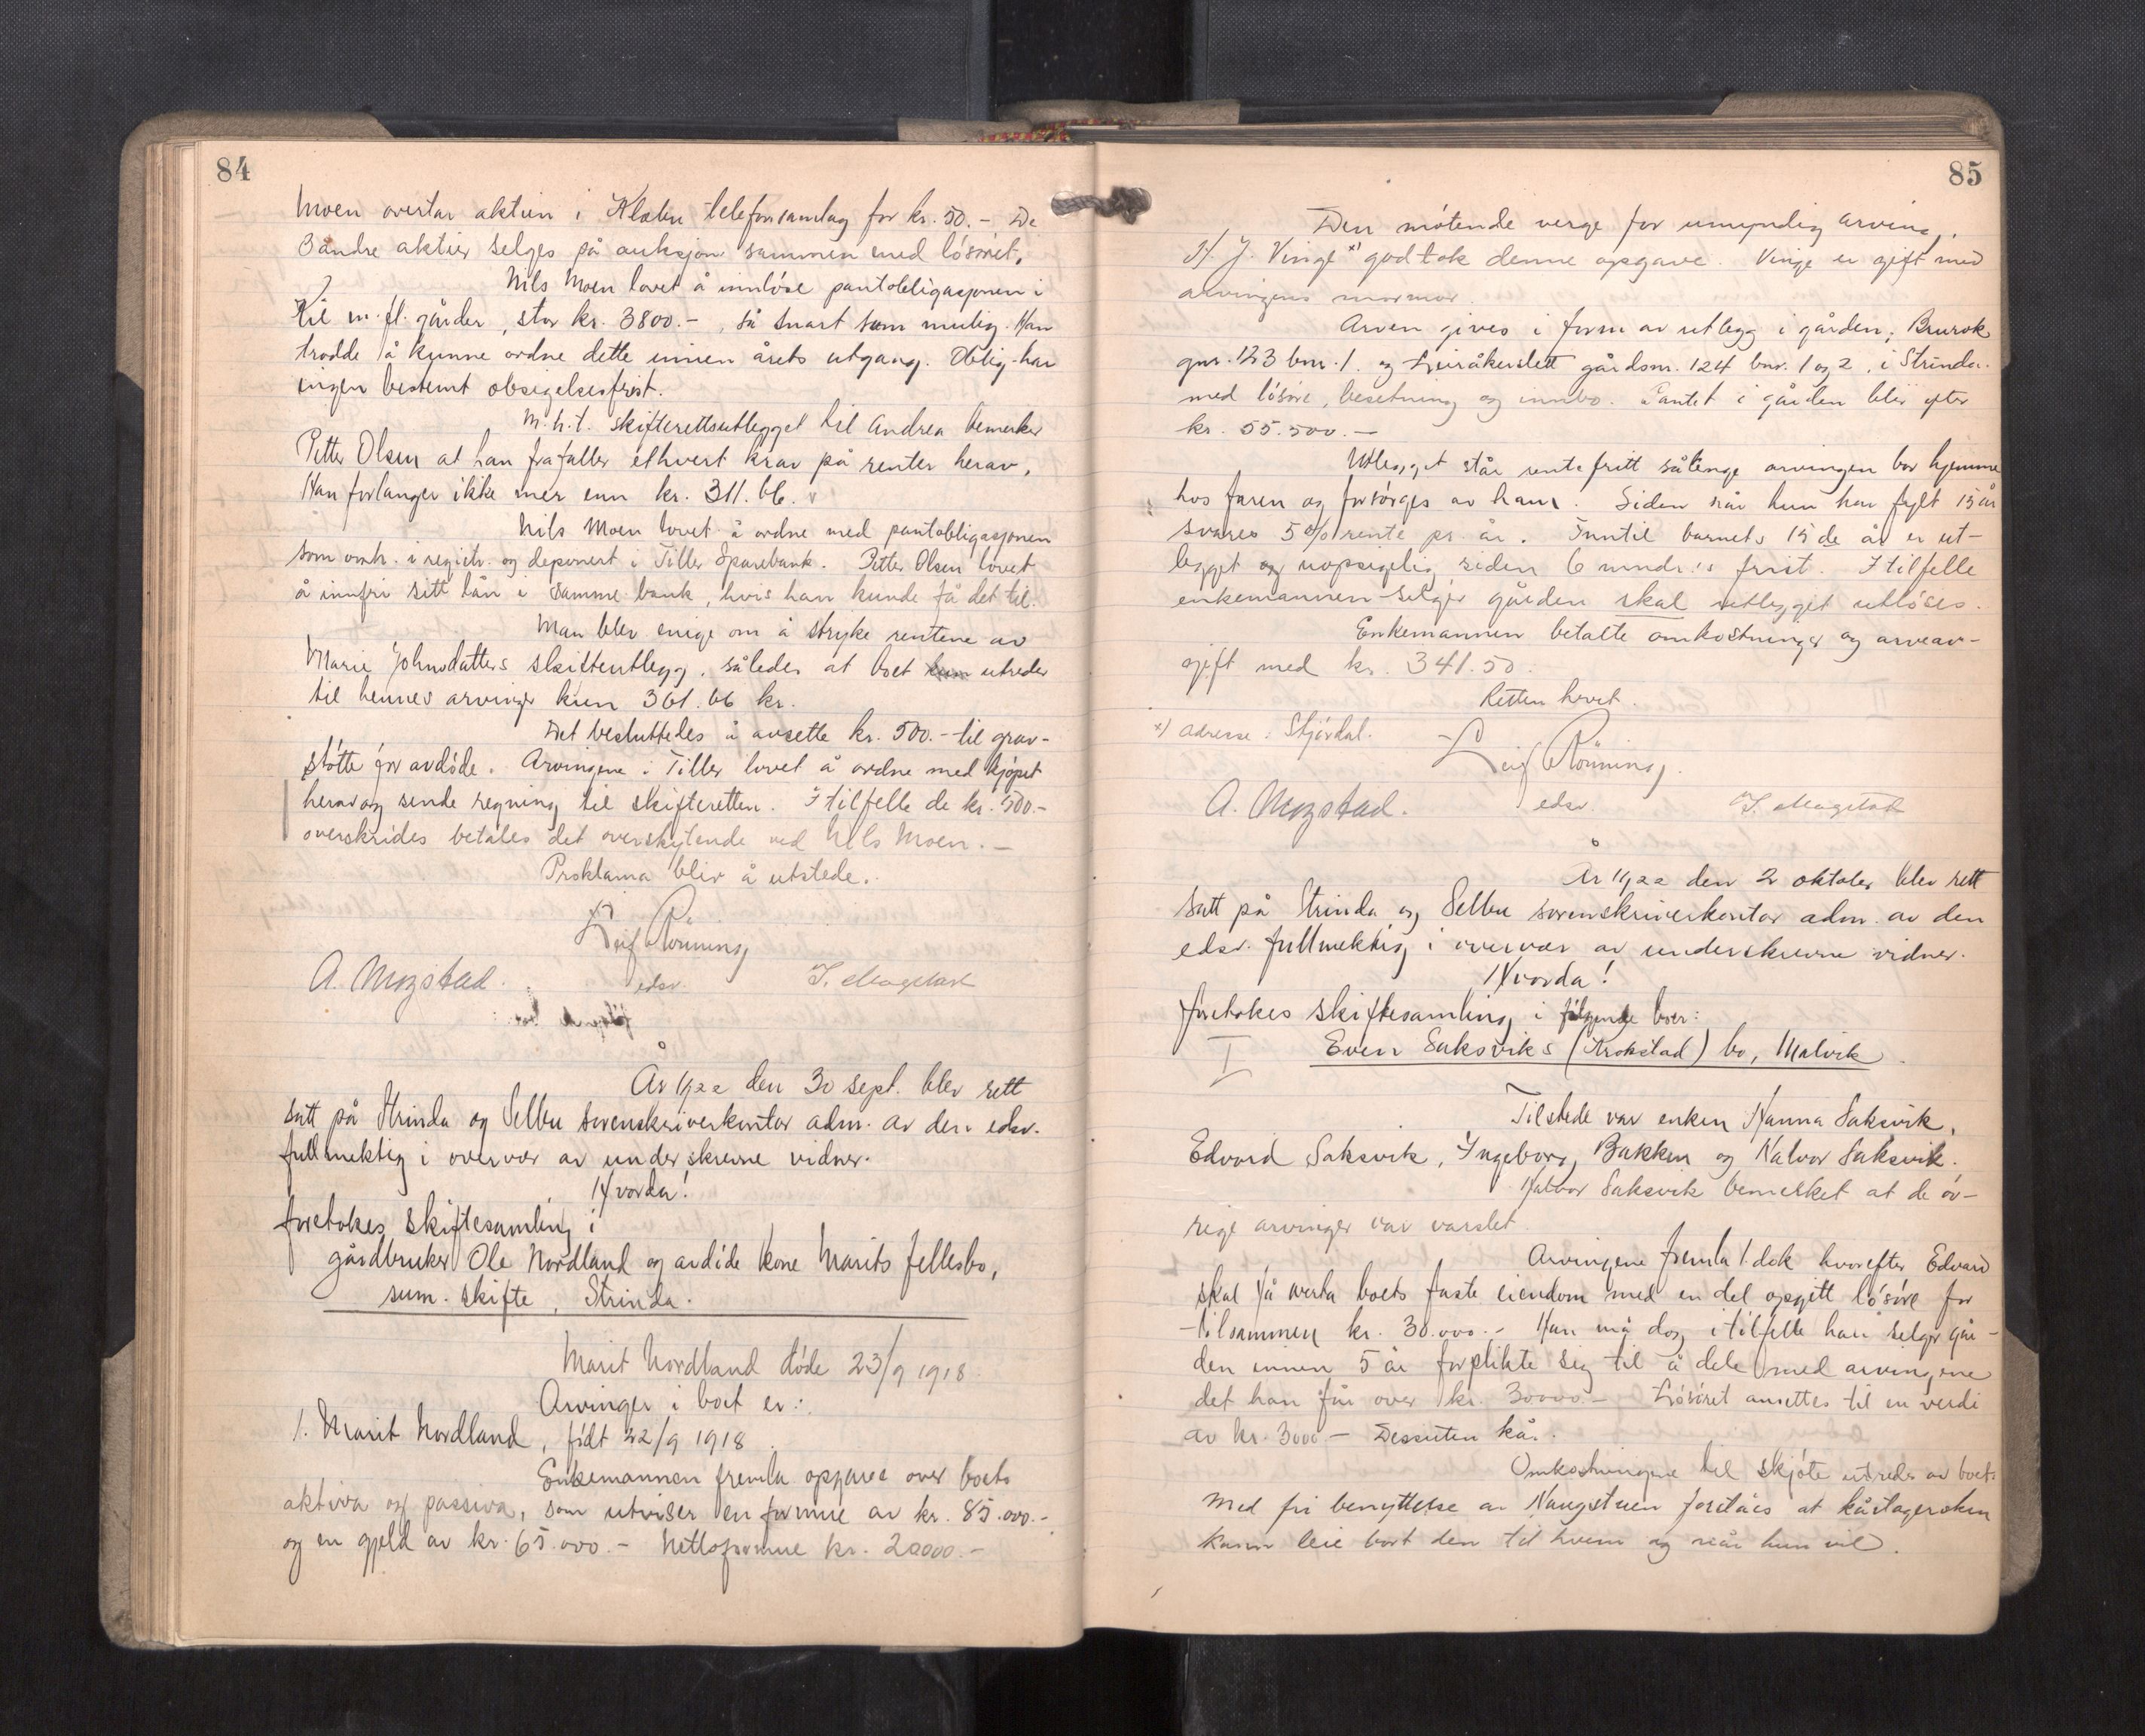 84
Moen overtar aktien i Klæbu telefonsamlag for kr. 50.- De
3 andre aktier selges på auksjon sammen med lósöret.
Nils Moen lovet å innlöse pantobligasjonen i
Kil m.fl. gårder, stor kr. 3800.-, så snart som mulig. Han
trodde å kunne ordne dette innen årets utgang. Oblig. har
ingen bestemt obsigelsesfrist.
M.h.t. skifterettsutlegget til Andrea bemerker
Petter Olsen at han frafaller ethvert krav på renter herav.
Han forlanger ikke mer enn kr. 311.66.
Nils Moen lovet å ordne med pantobligasjonen
som omh. i registr. og deponert i Tiller Sparebank. Petter Olsen lovet
å innfri sitt lån i samme bank, hvis han kunde få det til.
Man blev enige om å stryke rentene av
Marie Johnsdatters skifteutlegg, således at boet utreder
til hennes arvinger kun 361.66 kr.
Det besluttedes å avsette kr. 500.- til grav-
stötte for avdöde. Arvingene i Tiller lovet å ordne med kjöpet
herav og sende regning til skifteretten. I tilfelle de kr. 500.-
overskrides betales det overskytende ved Nils Moen.-
Proklama blir å utstede.
Leif Rönning
A. Mozstad. edsv. I. Magstad
År 1922 den 30 sept. blev rett
satt på Strinda og Selbu sorenskriverkontor adm. av den edsv.
fullmektig i overvær av underskrevne vidner.
Hvorda!
foretokes skiftesamling i
gårdbruker Ole Nordland og avdöde kone Marits fellesbo,
sum. skifte, Strinda.
Marit Nordland döde 23/9 1918
Arvinger i boet er:
1. Marit Nordland, födt 22/9 1918
Enkemannen fremla opgave over boets
aktiva og passiva, som utviser en formue av kr. 85.000.-
og en gjeld av kr. 65.000.- Nettoformue kr. 20000.-
85
Den mötende verge for umyndig arving,
H. J. Vinge x) godtok denne opgave. Vinge er gift med
arvingens mormor.
Arven gives i form av utlegg i gården, Brurok
gnr. 123 bnr. 1. og Leiråkerslett gårdsnr. 124 bnr. 1 og 2, i Strinda.
med lösöre, besetning og innbo. Pantet i gården blir efter
kr. 55.500.-
Utlegget står rentefritt sålenge arvingen bor hjemme
hos faren og forsörges av ham. Siden når hun har fylt 15 år
svares 5 % rente pr. år. Inntil barnets 15 de år er ut-
legget og uopsigelig siden 6 mndr.s frist. I tilfelle
enkemannen selger gården skal utlegget utlöses.
Enkemannen betalte omkostninger og arveav-
gift med kr. 341.50.
Retten hevet.
x) adresse: Stjördal.
Leif Rönning.
A. Mozstad. edsv. I. Magstad
År 1922 den 2 oktober blev rett
satt på Strinda og Selbu sorenskriverkontor adm. av den
edsv. fullmektig i overvær av underskrevne vidner.
Hvorda!
foretokes skiftesamling i fölgende boer:
I Even Saksviks (Krokstad) bo, Malvik
Tilstede var enken Hanna Saksvik,
Edvard Saksvik, Ingeborg Bakken og Halvor Saksvik.
Halvor Saksvik bemerket at de öv-
rige arvinger var varslet.
Arvingene fremla 1 dok hvorefter Edvard
skal få overta boets faste eiendom med en del opgitt lösöre for
tilsammen kr. 30.000.- Han må dog i tilfelle han selger går-
den innen 5 år forplikte sig til å dele med arvingene
det han får over kr. 30000.- Lösöret ansettes til en verdi
av kr. 3000.- Dessuten kår.
Omkostningene til skjöte utredes av boet.
Med fri benyttelse av Naugstuen forståes at kårtagersken
kann leie bort den til hvem og når hun vil.